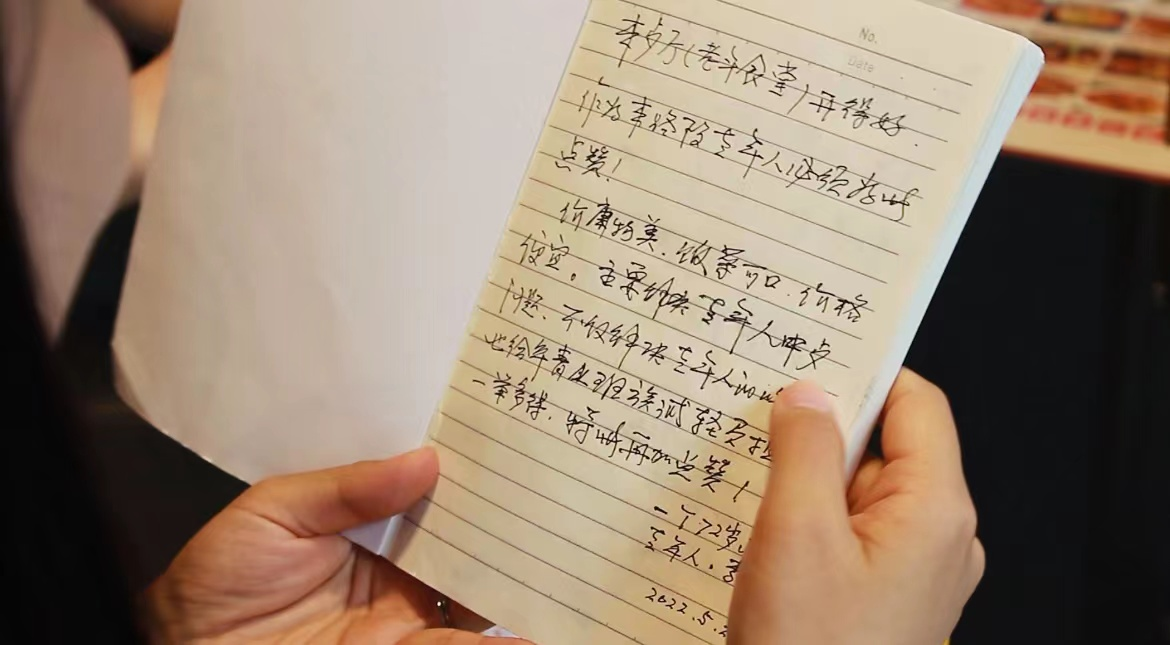 No.
Date
本步行(老年食堂)开得好.
作为本路段老年人,必须为此
点赞!
价廉物美.饭菜可口.价格
便宜。主要解决老年人中点
问题、不仅解决老年人
也给年青上班族减轻负担
一举多得.特此再加点赞!
一个72岁
老年人.李
2022.5.2